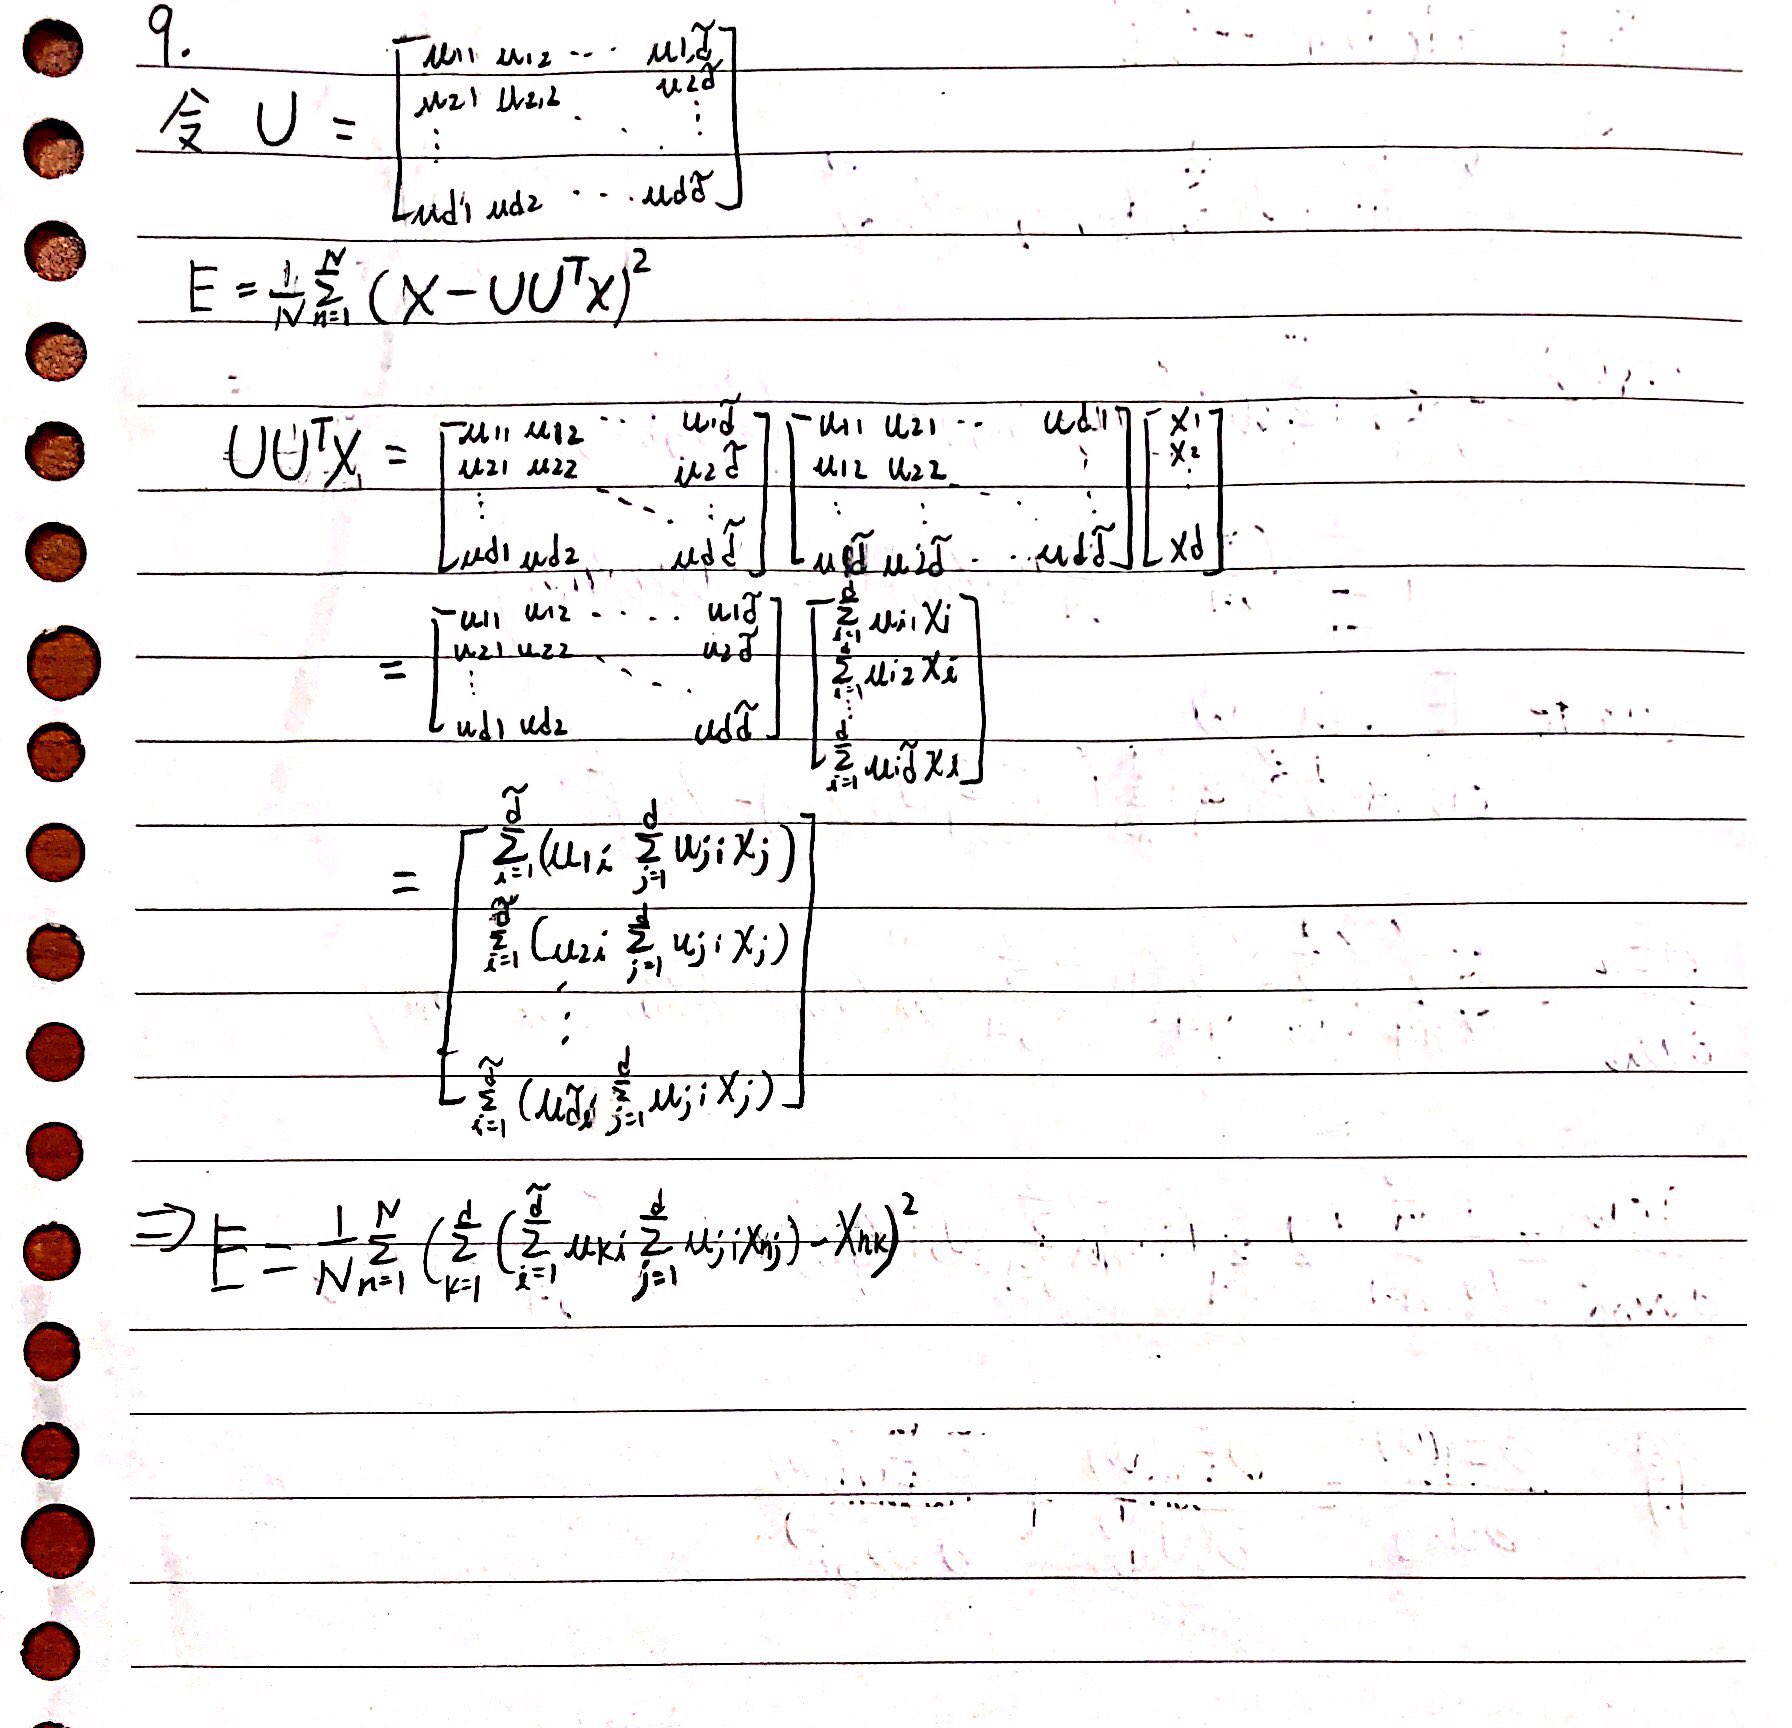 9.
令 U = [ u11 u12 ⋯ u1d̃
u21 u22 u2d̃
⋮ ⋱ ⋮
ud1 ud2 ⋯ udd̃ ]
E = 1/N ∑_{n=1}^{N} (X − UUᵀX)²
UUᵀX = [ u11 u12 ⋯ u1d̃ ] [ u11 u21 ⋯ ud1 ] [ x1 ]
[ u21 u22 u2d̃ ] [ u12 u22 ⋮ ] [ x2 ]
[ ⋮ ⋱ ⋮ ] [ ⋮ ⋮ ⋱ ⋮ ] [ ⋮ ]
[ ud1 ud2 udd̃ ] [ u1d̃ u2d̃ ⋯ udd̃ ] [ xd ]
= [ u11 u12 ⋯ u1d̃ ] [ ∑_{i=1}^{d} ui1 xi ]
[ u21 u22 u2d̃ ] [ ∑_{i=1}^{d} ui2 xi ]
[ ⋮ ⋱ ] [ ⋮ ]
[ ud1 ud2 udd̃ ] [ ∑_{i=1}^{d} uid̃ xi ]
= [ ∑_{i=1}^{d̃} (u1i ∑_{j=1}^{d} uji xj) ]
[ ∑_{i=1}^{d̃} (u2i ∑_{j=1}^{d} uji xj) ]
⋮
[ ∑_{i=1}^{d̃} (ud̃i ∑_{j=1}^{d} uji xj) ]
⇒ E = 1/N ∑_{n=1}^{N} (∑_{k=1}^{d} (∑_{i=1}^{d̃} uki ∑_{j=1}^{d} uji xnj) − Xnk)²